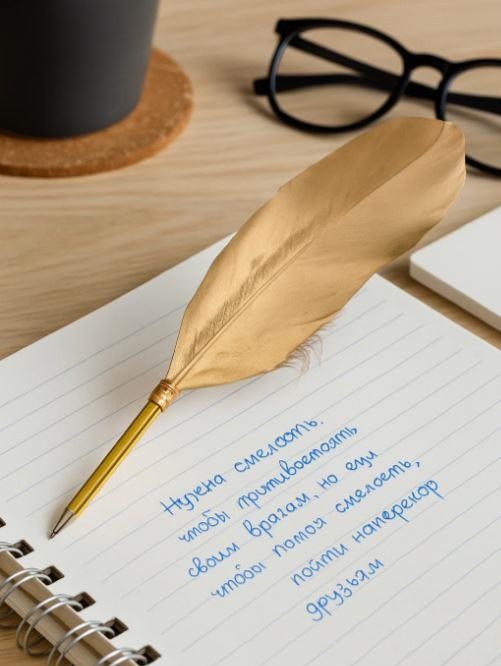 Нужна смелость.
чтобы противостоять
своим врагам, но ещи
чтобы помоя смелость,
пойти наперекор
друзьям